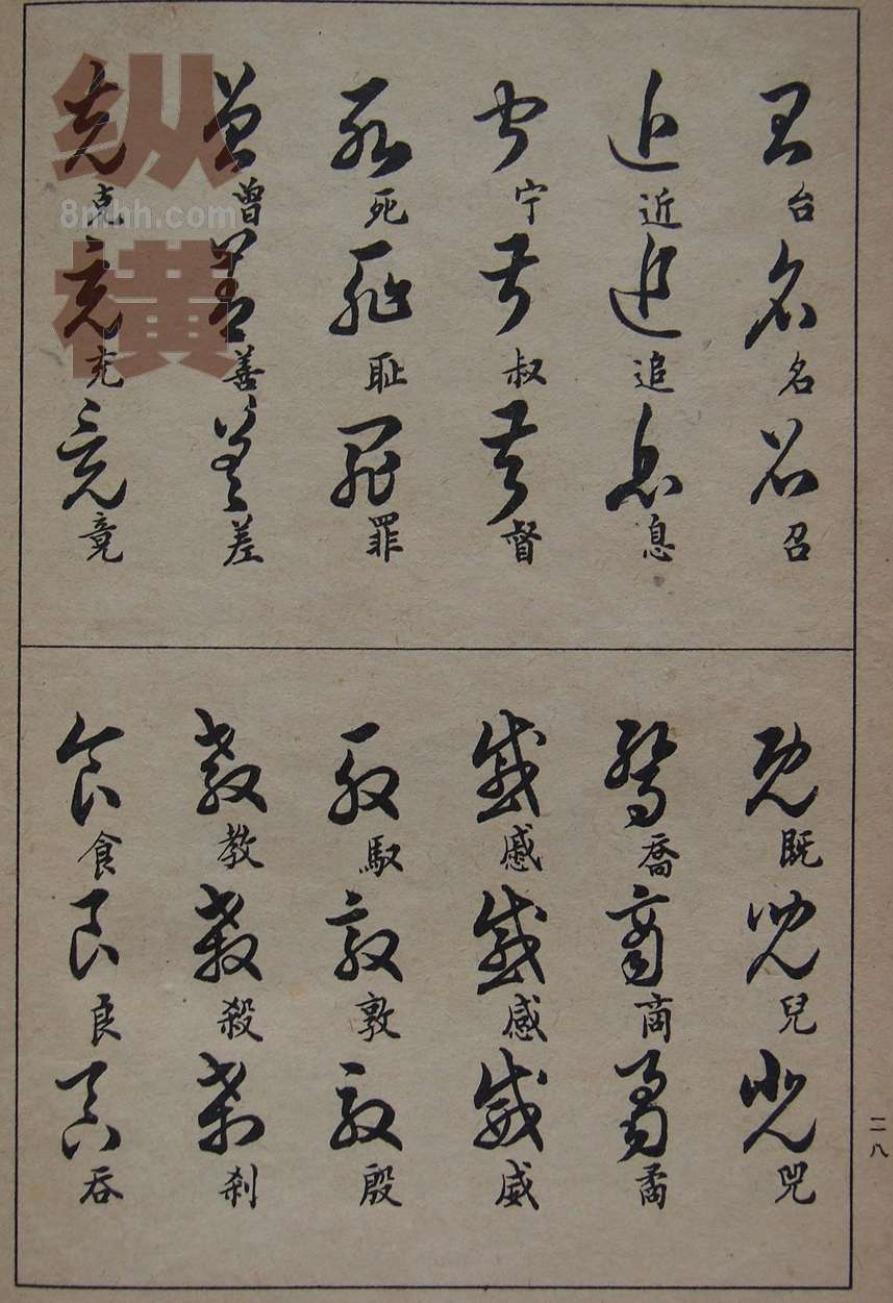 台名召
近追息
宁叔督
死耻罪
曾善差
克充竟
既兒兕
喬商矞
慼感威
馭敦殷
教殺刹
食良吞
二八
纵横
8mhh.com